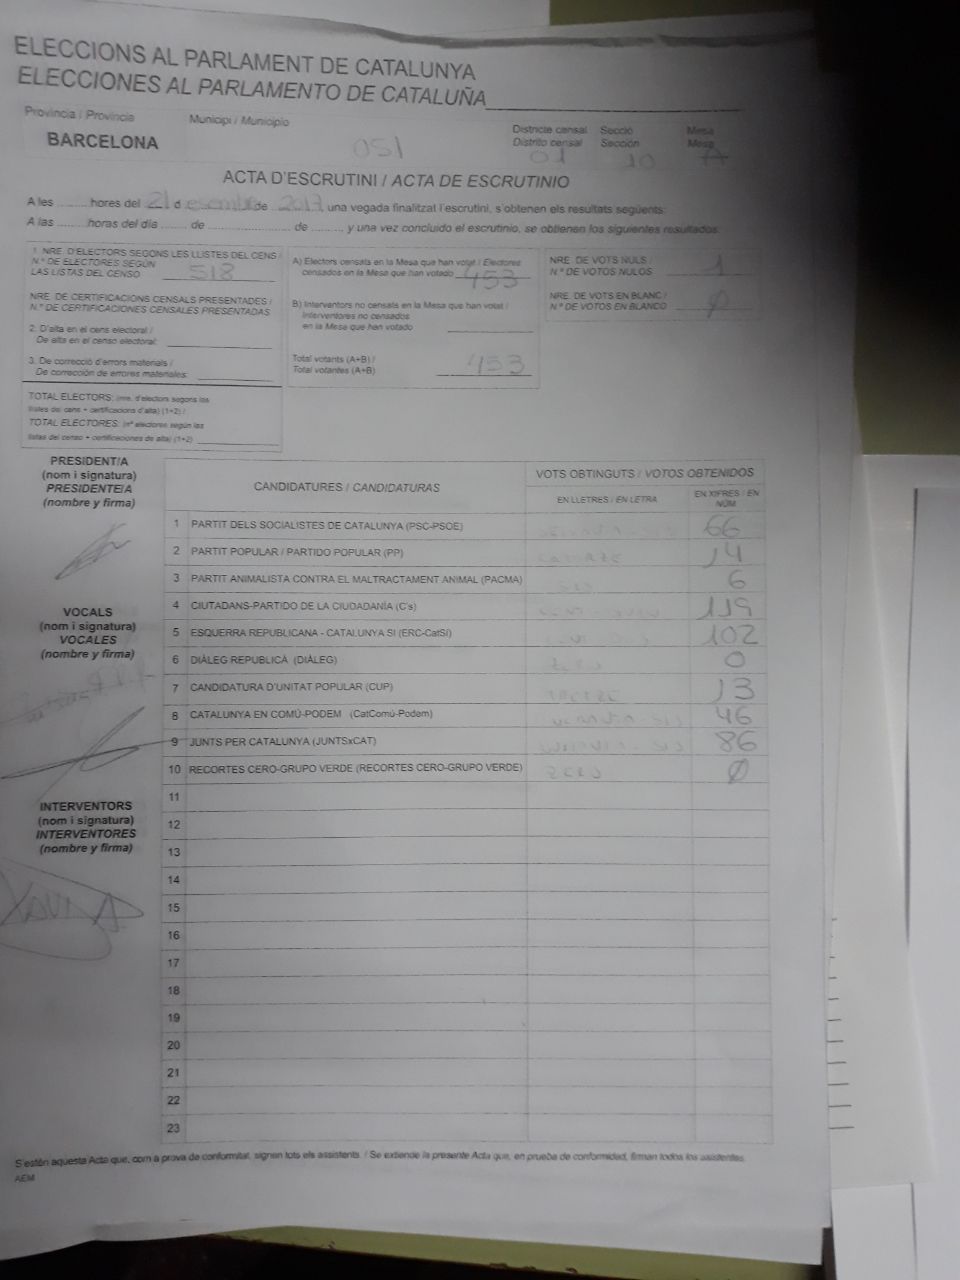 ELECCIONS AL PARLAMENT DE CATALUNYA
ELECCIONES AL PARLAMENTO DE CATALUÑA
Província / Provincia Municipi / Municipio Districte censal Secció Mesa
Distrito censal Sección Mesa
BARCELONA 051 01 10 A
ACTA D'ESCRUTINI / ACTA DE ESCRUTINIO
A les ......... hores del 21 d desembre de 2017, una vegada finalitzat l'escrutini, s'obtenen els resultats següents:
A las ........ horas del día ........ de ........................ de ........., y una vez concluido el escrutinio, se obtienen los siguientes resultados:
1. NRE. D'ELECTORS SEGONS LES LLISTES DEL CENS /
N.º DE ELECTORES SEGÚN
LAS LISTAS DEL CENSO 518
NRE. DE CERTIFICACIONS CENSALS PRESENTADES /
N.º DE CERTIFICACIONES CENSALES PRESENTADAS
2. D'alta en el cens electoral /
De alta en el censo electoral:
3. De correcció d'errors materials /
De corrección de errores materiales:
TOTAL ELECTORS: (nre. d'electors segons les
llistes del cens + certificacions d'alta) (1+2) /
TOTAL ELECTORES: (nº electores según las
listas del censo + certificaciones de alta) (1+2)
A) Electors censats en la Mesa que han votat / Electores
censados en la Mesa que han votado 453
B) Interventors no censats en la Mesa que han votat /
Interventores no censados
en la Mesa que han votado
Total votants (A+B) /
Total votantes (A+B) 453
NRE. DE VOTS NULS /
N.º DE VOTOS NULOS 1
NRE. DE VOTS EN BLANC /
N.º DE VOTOS EN BLANCO 0
PRESIDENT/A
(nom i signatura)
PRESIDENTE/A
(nombre y firma)
VOCALS
(nom i signatura)
VOCALES
(nombre y firma)
INTERVENTORS
(nom i signatura)
INTERVENTORES
(nombre y firma)
CANDIDATURES / CANDIDATURAS VOTS OBTINGUTS / VOTOS OBTENIDOS
EN LLETRES / EN LETRA EN XIFRES / EN NÚM.
1 PARTIT DELS SOCIALISTES DE CATALUNYA (PSC-PSOE) 66
2 PARTIT POPULAR / PARTIDO POPULAR (PP) CATORZE 14
3 PARTIT ANIMALISTA CONTRA EL MALTRACTAMENT ANIMAL (PACMA) SIS 6
4 CIUTADANS-PARTIDO DE LA CIUDADANÍA (C's) 119
5 ESQUERRA REPUBLICANA - CATALUNYA SÍ (ERC-CatSí) 102
6 DIÀLEG REPUBLICÀ (DIÀLEG) ZERO 0
7 CANDIDATURA D'UNITAT POPULAR (CUP) TRETZE 13
8 CATALUNYA EN COMÚ-PODEM (CatComú-Podem) 46
9 JUNTS PER CATALUNYA (JUNTSxCAT) 86
10 RECORTES CERO-GRUPO VERDE (RECORTES CERO-GRUPO VERDE) ZERO 0
11
12
13
14
15
16
17
18
19
20
21
22
23
S'estén aquesta Acta que, com a prova de conformitat, signen tots els assistents. / Se extiende la presente Acta que, en prueba de conformidad, firman todos los asistentes.
AEM